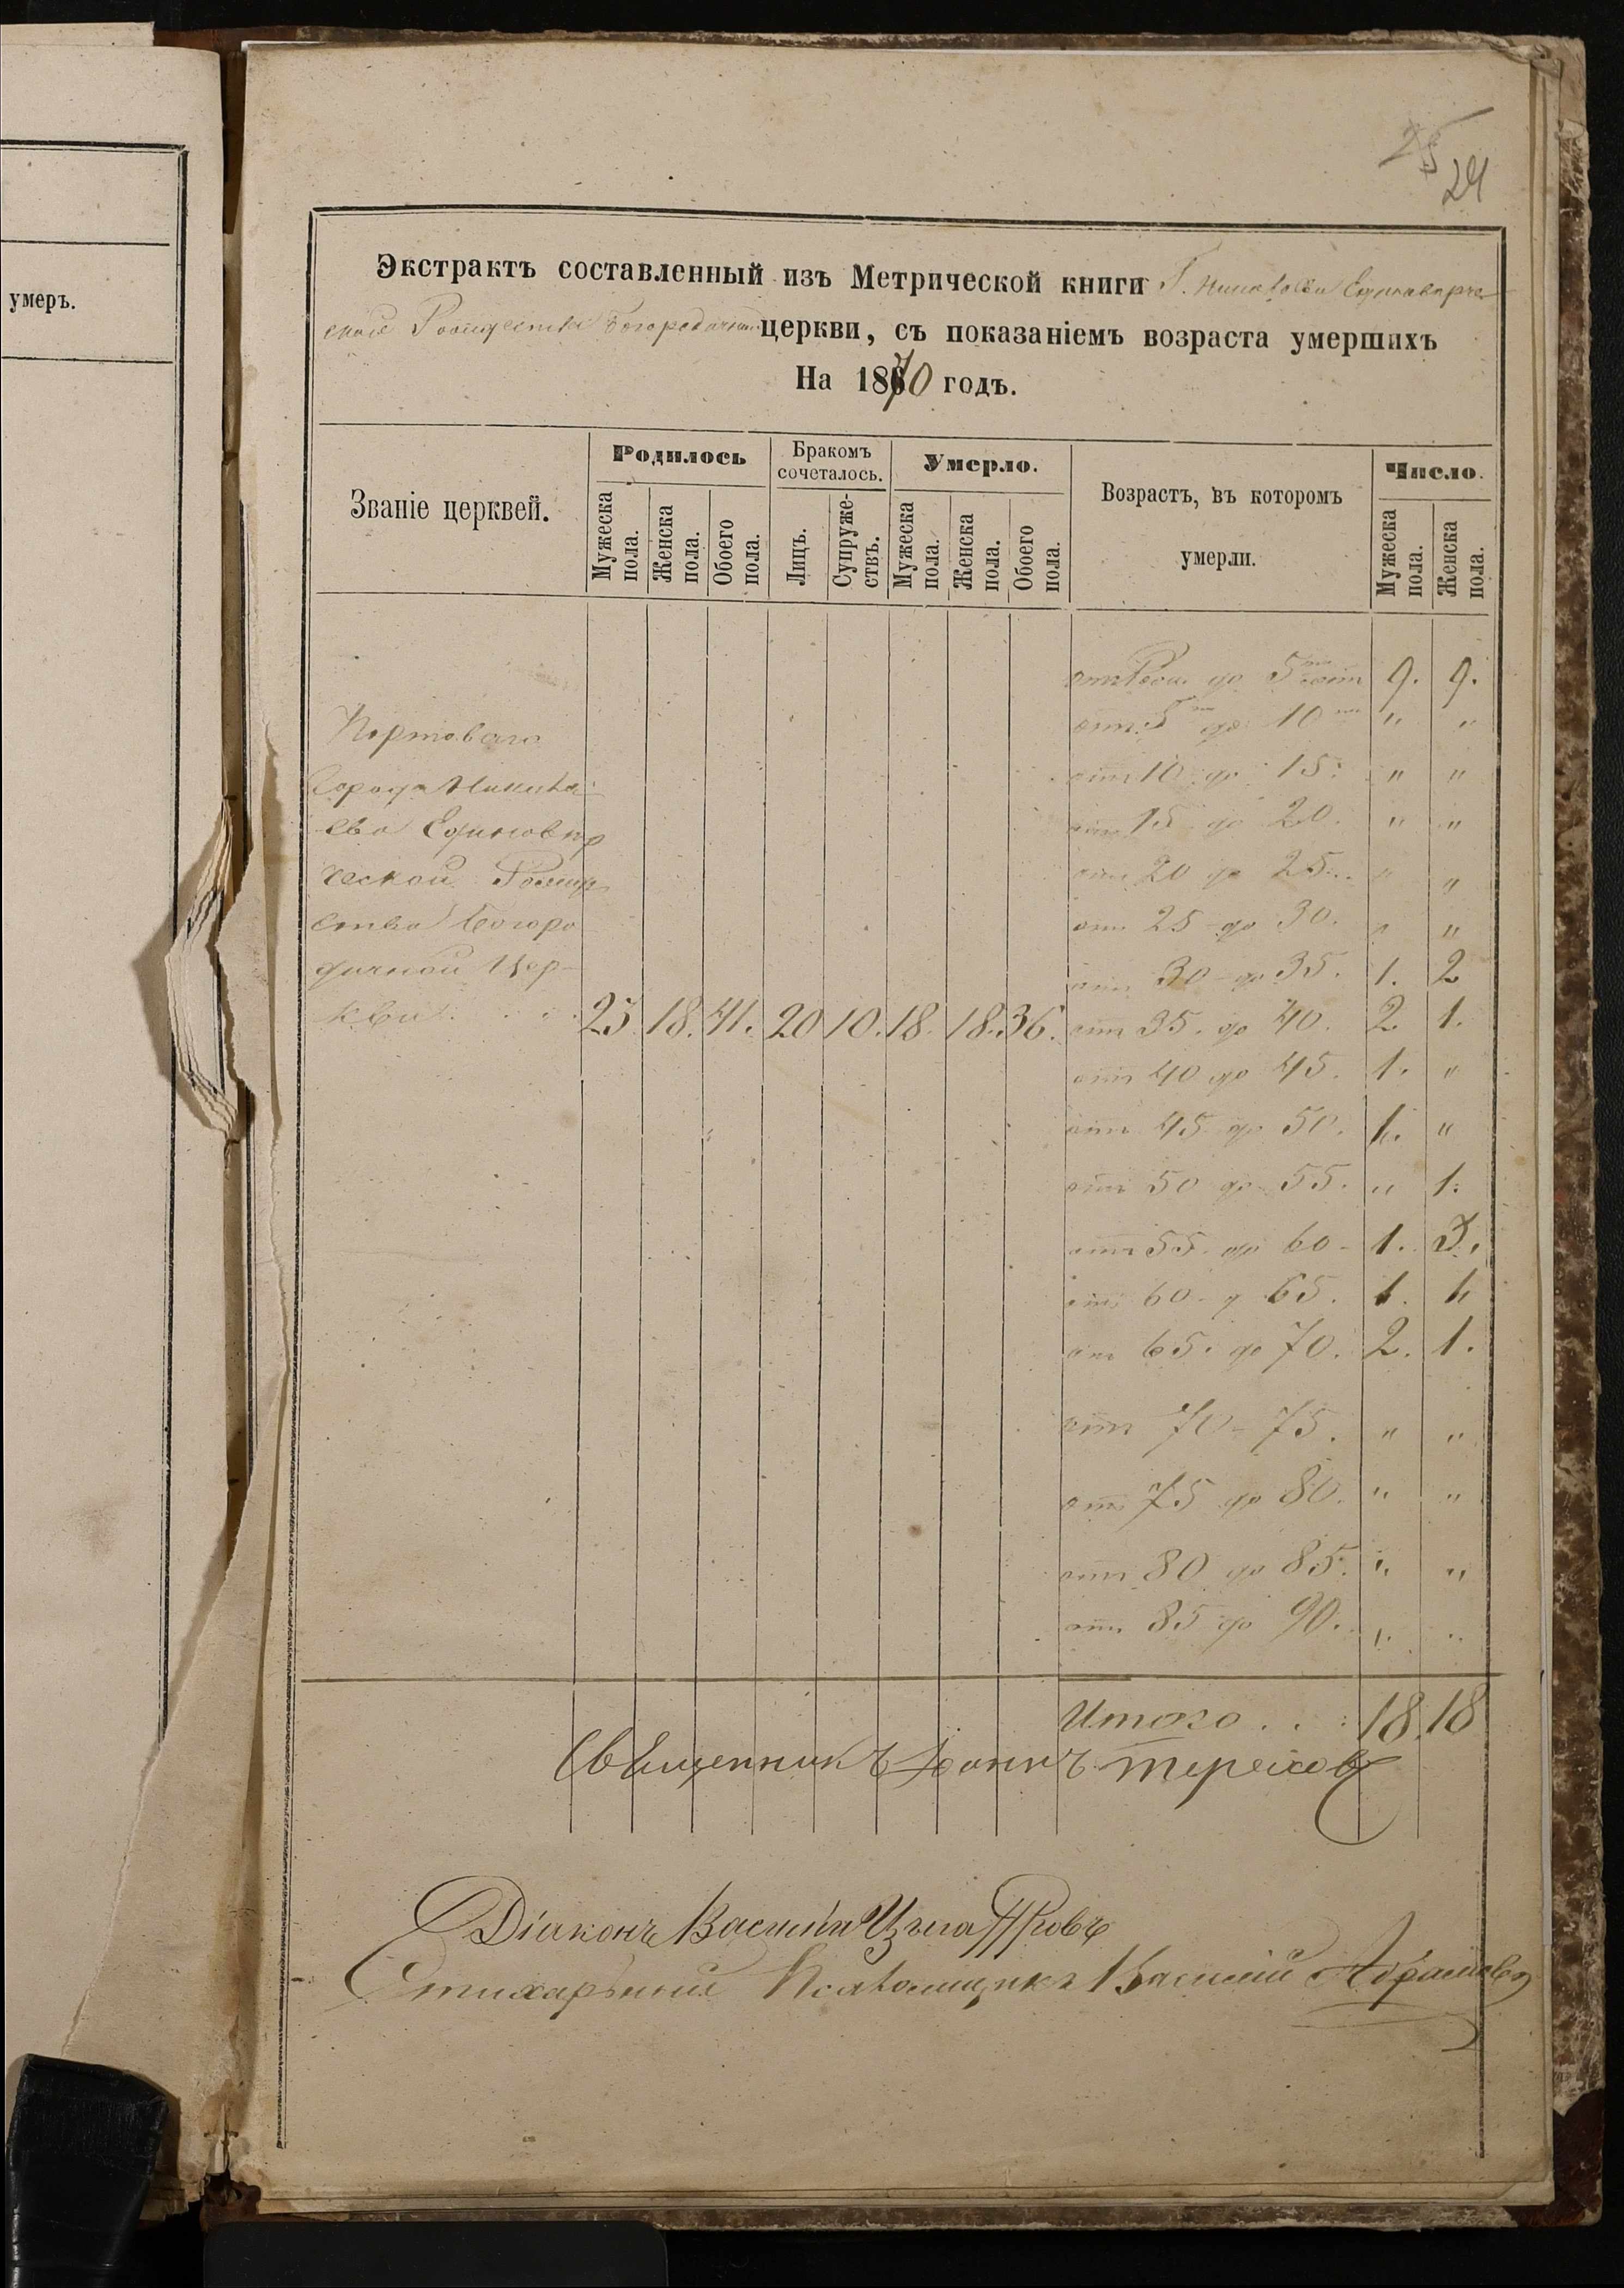 умеръ.
25
24
Экстрактъ составленный изъ Метрической книги Г. Николаева Единовѣрче-
ской Рождества Богородичной церкви, съ показаніемъ возраста умершихъ
На 1870 годъ.
Званіе церквей.
Родилось
Бракомъ сочеталось.
Умерло.
Возрастъ, въ которомъ умерли.
Число.
Мужеска пола.
Женска пола.
Обоего пола.
Лицъ.
Супруже-ствъ.
Мужеска пола.
Женска пола.
Обоего пола.
Мужеска пола.
Женска пола.
отъ Рож. до 5 лѣтъ 9. 9.
Портоваго
отъ 5 до 10 " "
города Никола-
отъ 10 до 15. " "
ева Единовѣр
отъ 15 до 20. " "
ческой Рожде
отъ 20 до 25. " "
ства Богоро
отъ 25 до 30. " "
дичной Цер-
отъ 30 до 35. 1. 2
кви 23 18. 41. 20 10. 18. 18. 36. отъ 35. до 40. 2. 1.
отъ 40 до 45. 1. "
отъ 45 до 50. 1. "
отъ 50 до 55. " 1.
отъ 55 до 60 1. 3.
отъ 60 д 65. 1. 1.
отъ 65. до 70. 2. 1.
отъ 70 - 75. " "
отъ 75 до 80. " "
отъ 80 до 85. " "
отъ 85 до 90. " "
Итого . . . 18. 18
Священникъ Іоаннъ Тереховъ
Діаконъ Василій
Стихарный Псаломщикъ Василій Абрамовъ